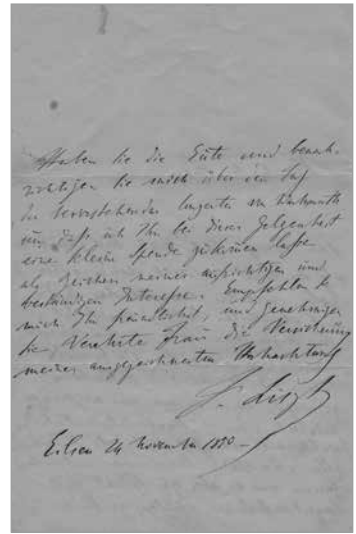 Haben Sie die Güte und benach-
richtigen Sie mich über den Tag
des bevorstehenden
um, daß ich Ihn bei dieser Gelegenheit
eine kleine Spende zukommen lasse
als Zeichen meines aufrichtigen und
beständigen Interesses. Empfehlen Sie
mich Ihn freundlichst, und genehmigen
Sie Verehrte Frau die Versicherung
meiner ausgezeichnetesten Hochachtung
F. Liszt
Eilsen 24 November 1850